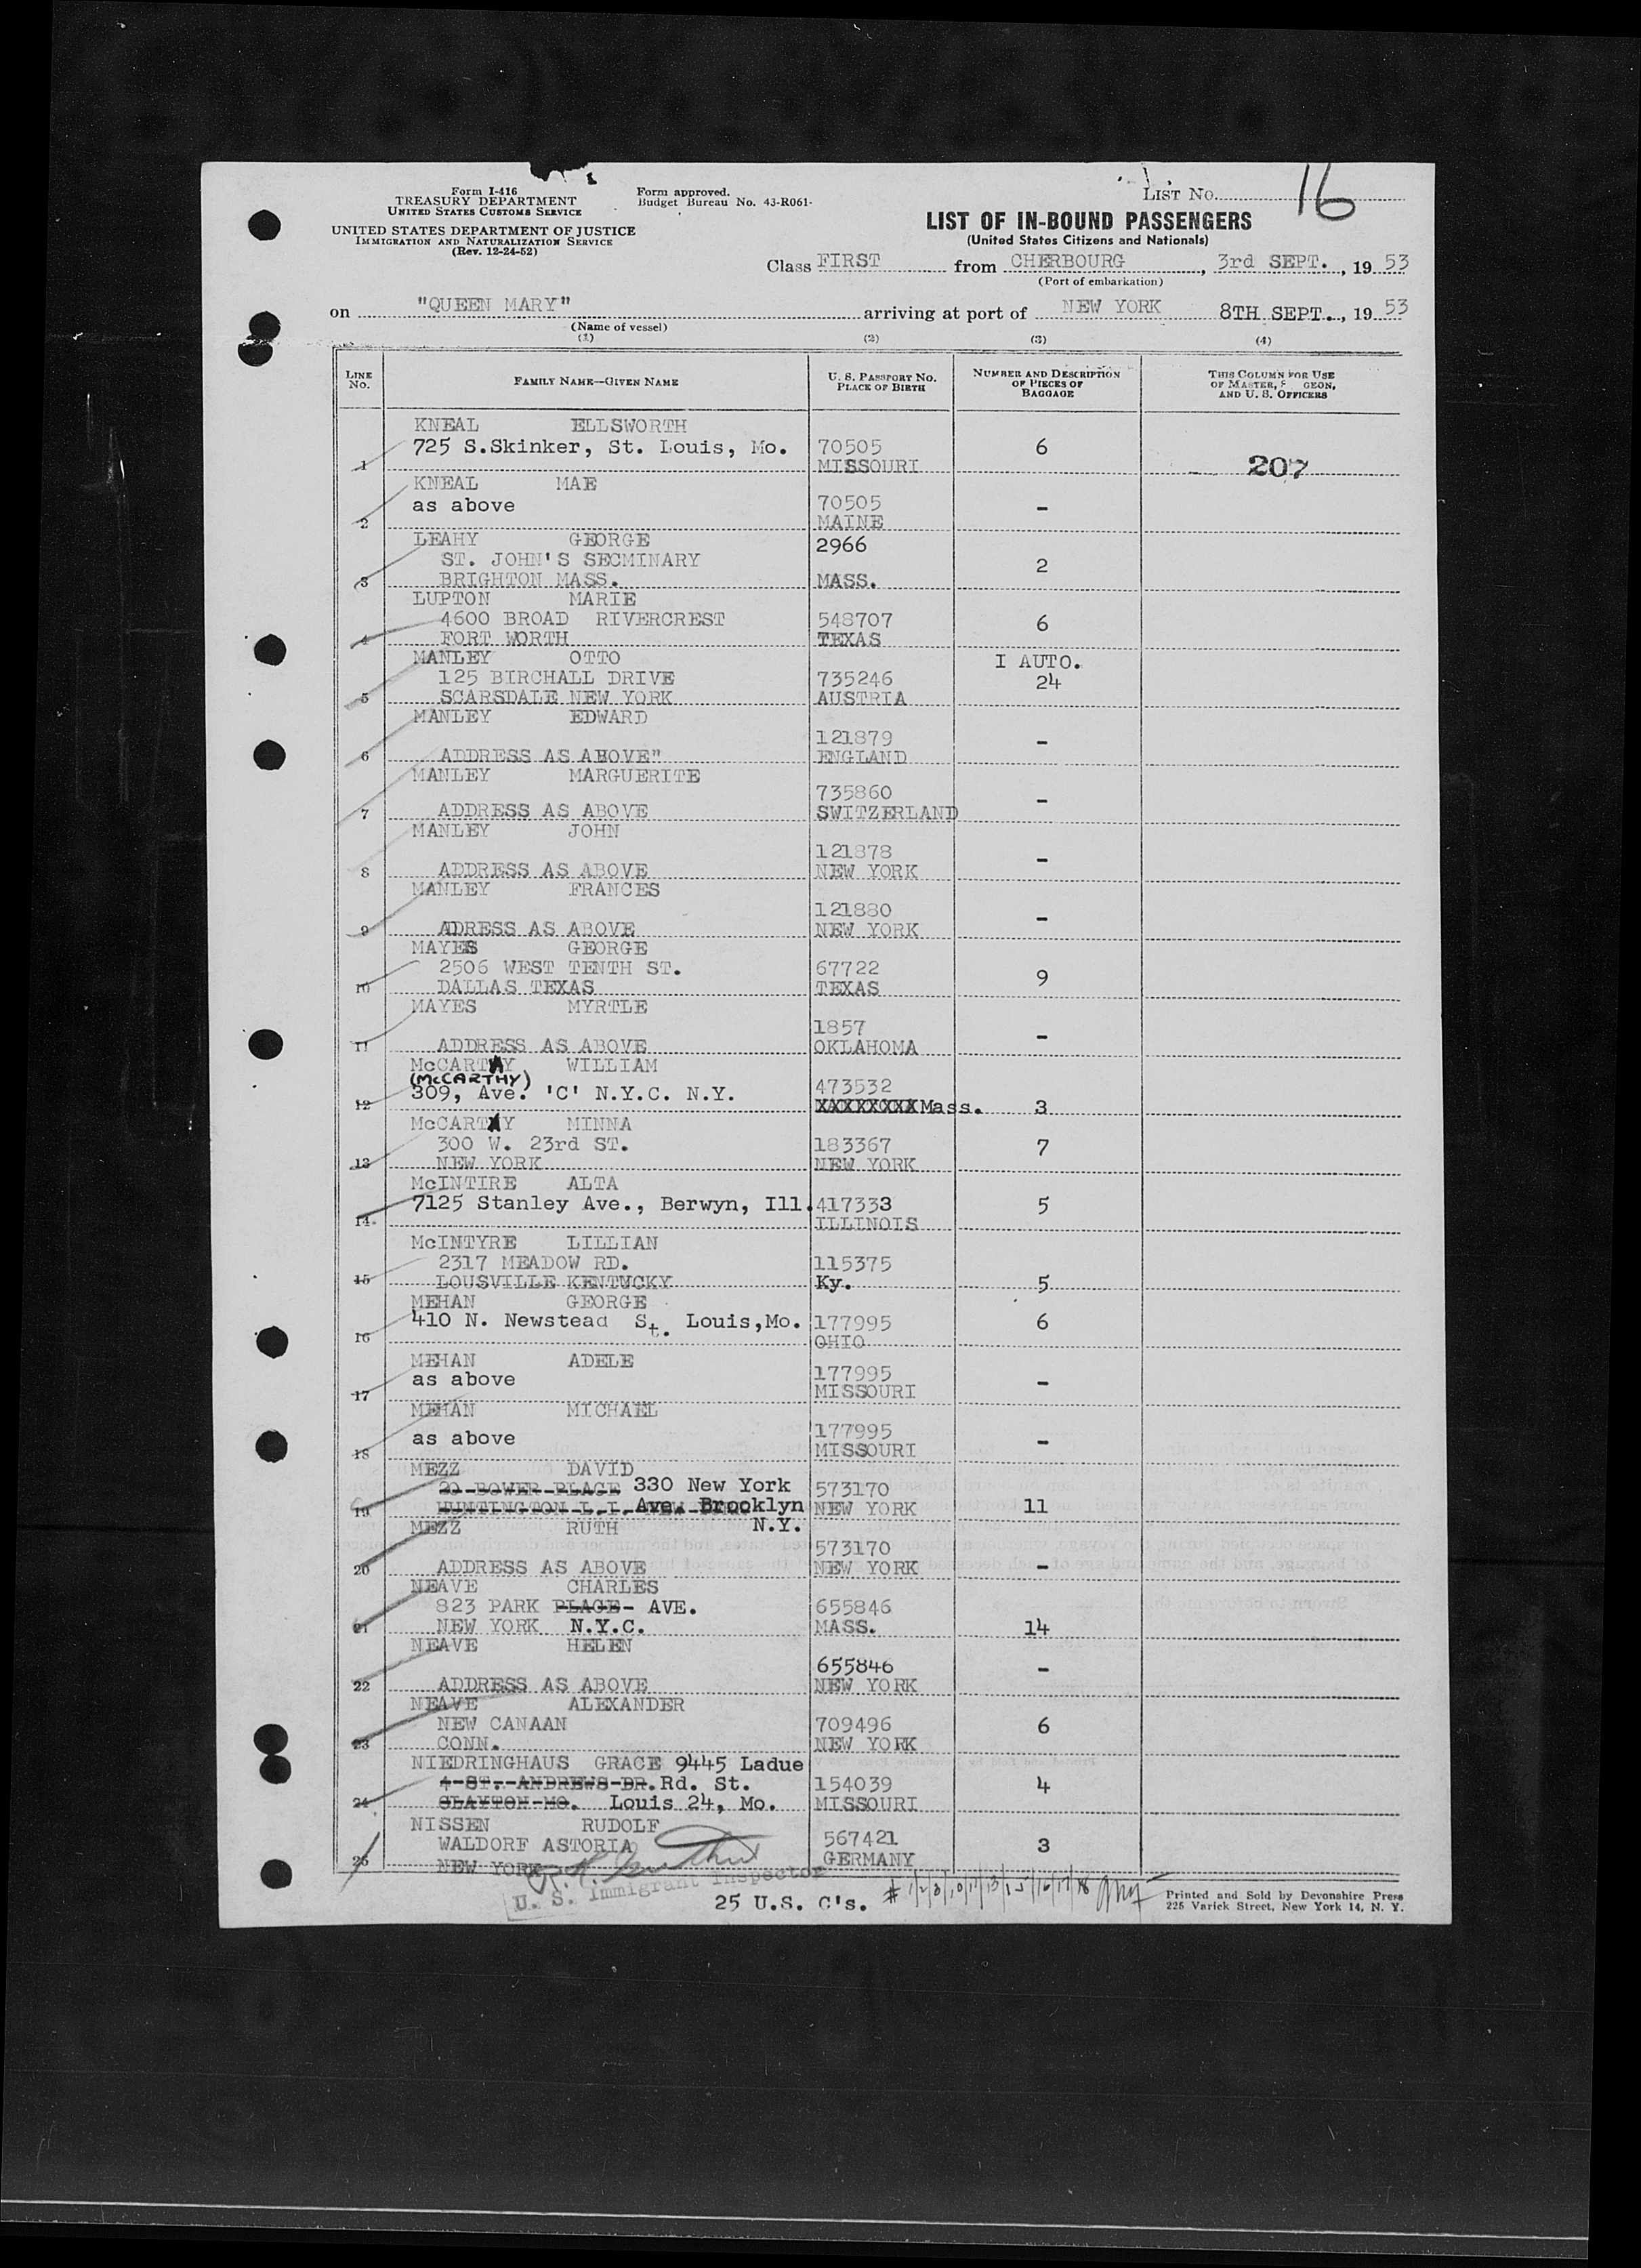 Form I-416
TREASURY DEPARTMENT
UNITED STATES CUSTOMS SERVICE
UNITED STATES DEPARTMENT OF JUSTICE
IMMIGRATION AND NATURALIZATION SERVICE
(Rev. 12-24-52)
Form approved.
Budget Bureau No. 43-R061-
LIST No. 16
LIST OF IN-BOUND PASSENGERS
(United States Citizens and Nationals)
Class FIRST from CHERBOURG, 3rd SEPT., 1953
(Port of embarkation)
on "QUEEN MARY" arriving at port of NEW YORK 8TH SEPT., 1953
(Name of vessel)
(1) (2) (3) (4)
LINE No. FAMILY NAME—GIVEN NAME U. S. PASSPORT No. PLACE OF BIRTH NUMBER AND DESCRIPTION OF PIECES OF BAGGAGE THIS COLUMN FOR USE OF MASTER, S GEON, AND U. S. OFFICERS
KNEAL ELLSWORTH
725 S.Skinker, St. Louis, Mo. 70505 6
1 MISSOURI 207
KNEAL MAE
as above 70505 -
2 MAINE
LEAHY GEORGE 2966
ST. JOHN'S SECMINARY 2
3 BRIGHTON MASS. MASS.
LUPTON MARIE
4600 BROAD RIVERCREST 548707 6
4 FORT WORTH TEXAS
MANLEY OTTO I AUTO.
125 BIRCHALL DRIVE 735246 24
5 SCARSDALE NEW YORK AUSTRIA
MANLEY EDWARD
121879 -
6 ADDRESS AS ABOVE" ENGLAND
MANLEY MARGUERITE
735860 -
7 ADDRESS AS ABOVE SWITZERLAND
MANLEY JOHN
121878 -
8 ADDRESS AS ABOVE NEW YORK
MANLEY FRANCES
121880 -
9 ADRESS AS ABOVE NEW YORK
MAYES GEORGE
2506 WEST TENTH ST. 67722 9
10 DALLAS TEXAS TEXAS
MAYES MYRTLE
1857 -
11 ADDRESS AS ABOVE OKLAHOMA
McCARTHY WILLIAM
(McCARTHY)
309, Ave. 'C' N.Y.C. N.Y. 473532
12 XXXXXXXX Mass. 3
McCARTHY MINNA
300 W. 23rd ST. 183367 7
13 NEW YORK NEW YORK
McINTIRE ALTA
7125 Stanley Ave., Berwyn, Ill. 417333 5
14 ILLINOIS
McINTYRE LILLIAN
2317 MEADOW RD. 115375
15 LOUSVILLE KENTUCKY Ky. 5
MEHAN GEORGE
410 N. Newstead St. Louis, Mo. 177995 6
16 OHIO
MEHAN ADELE
as above 177995 -
17 MISSOURI
MEHAN MICHAEL
as above 177995 -
18 MISSOURI
MEZZ DAVID
20 BOWER PLACE 330 New York 573170
19 HUNTINGTON L.I. NEW Ave. Brooklyn NEW YORK 11
MEZZ RUTH N.Y.
573170 -
20 ADDRESS AS ABOVE NEW YORK
NEAVE CHARLES
823 PARK PLACE - AVE. 655846
21 NEW YORK N.Y.C. MASS. 14
NEAVE HELEN
655846 -
22 ADDRESS AS ABOVE NEW YORK
NEAVE ALEXANDER
NEW CANAAN 709496 6
23 CONN. NEW YORK
NIEDRINGHAUS GRACE 9445 Ladue
4 ST. ANDREWS DR. Rd. St. 154039 4
24 CLAYTON MO. Louis 24, Mo. MISSOURI
NISSEN RUDOLF
WALDORF ASTORIA 567421 3
25 NEW YORK GERMANY
U. S. Immigrant Inspector
25 U.S. C's. # 1/2/3/10/11/13/15/16/17/18
Printed and Sold by Devonshire Press
225 Varick Street, New York 14, N. Y.